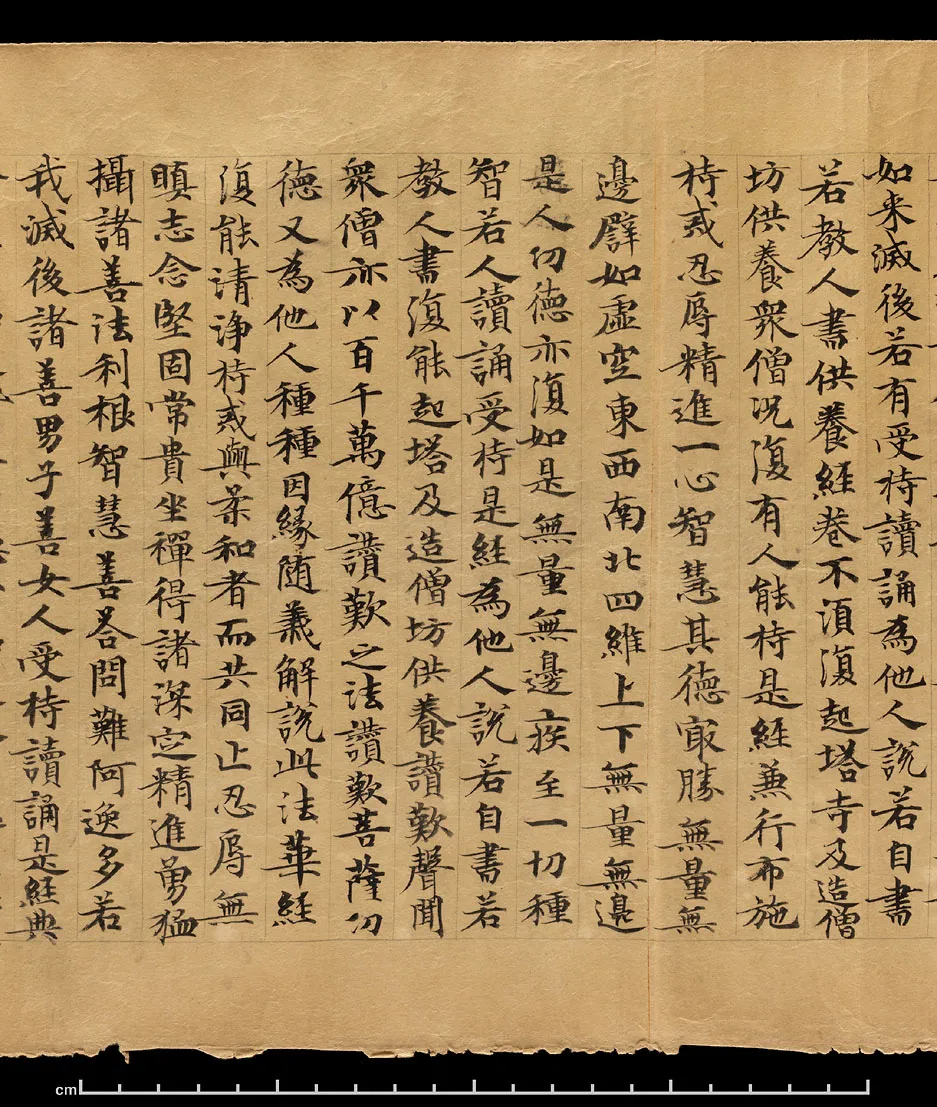 如来滅後若有受持讀誦為他人說若自書
若教人書供養經卷不須復起塔寺及造僧
坊供養衆僧況復有人能持是經兼行布施
持戒忍辱精進一心智慧其德㝡勝無量無
邊譬如虛空東西南北四維上下無量無邊
是人功德亦復如是無量無邊疾至一切種
智若人讀誦受持是經為他人說若自書若
教人書復能起塔及造僧坊供養讃歎聲聞
衆僧亦以百千萬億讃歎之法讃歎菩薩功
德又為他人種種因緣随義解說此法華經
復能清浄持戒與柔和者而共同止忍辱無
瞋志念堅固常貴坐禪得諸深定精進勇猛
攝諸善法利根智慧善荅問難阿逸多若
我滅後諸善男子善女人受持讀誦是經典
cm